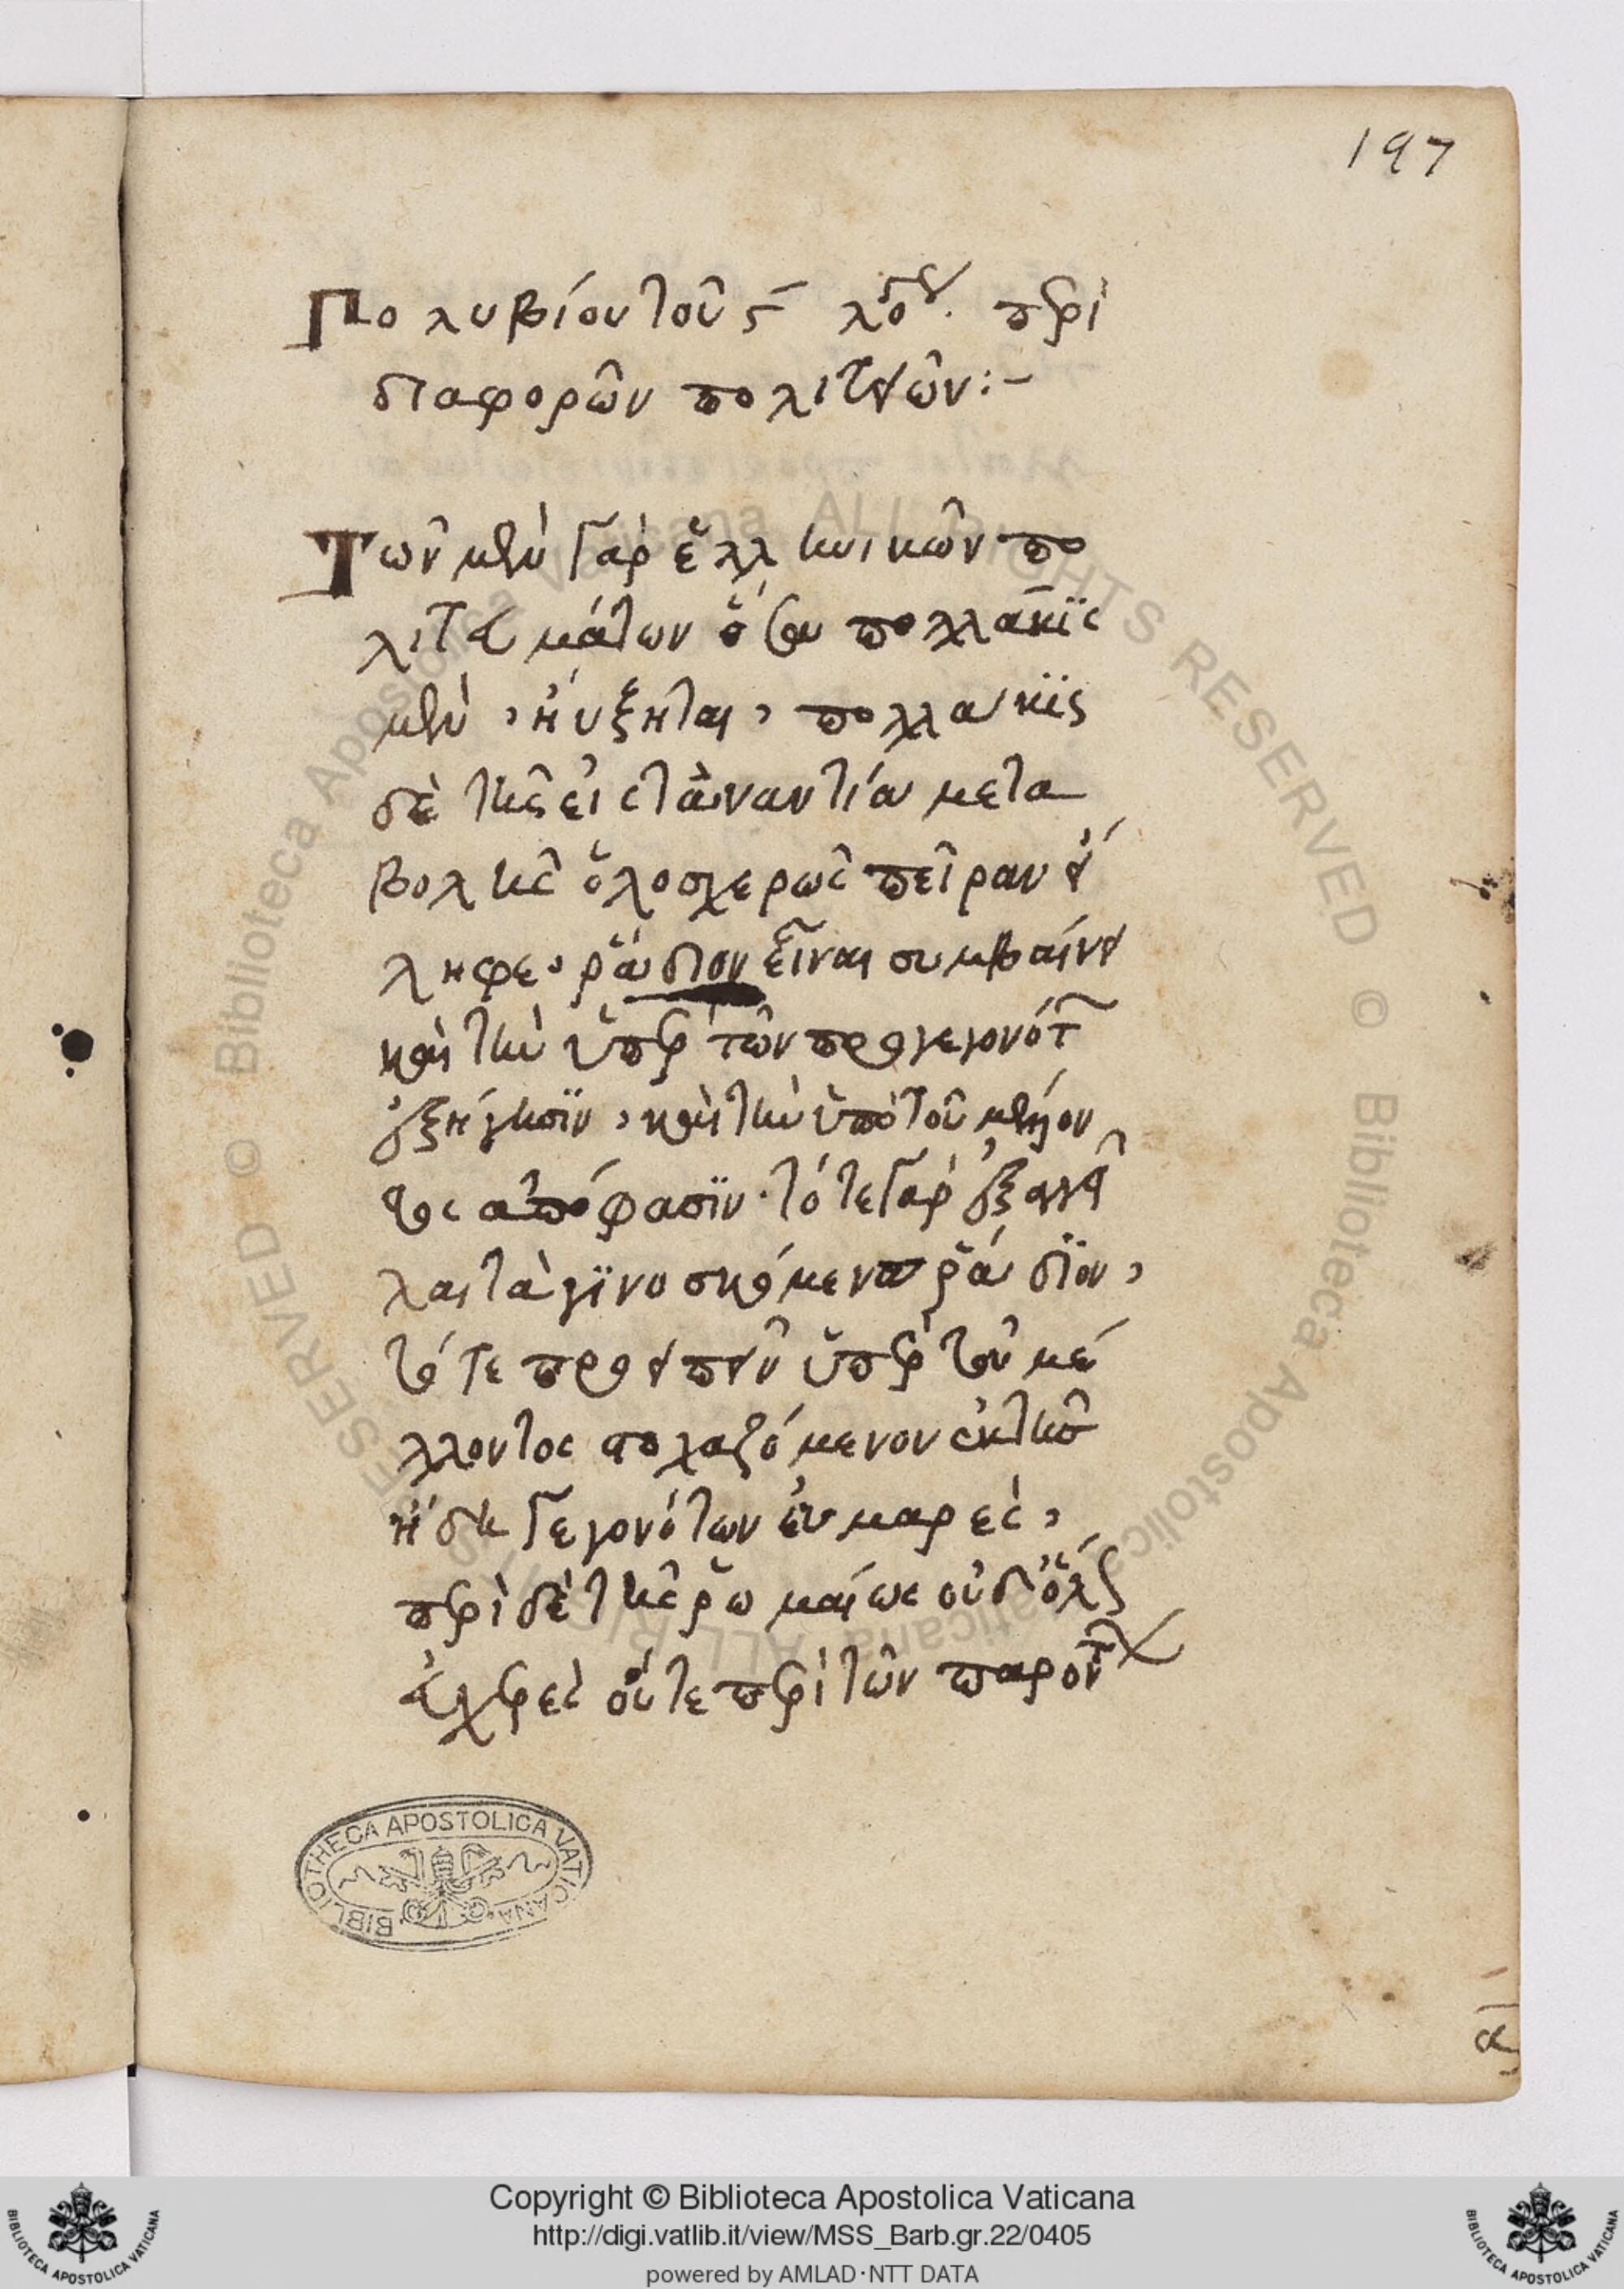 197
Πολυβίου τοῦ ϛ λόγου περὶ
διαφορῶν πολιτειῶν:-
Τῶν μὲν γὰρ ἑλληνικῶν πο
λιτευμάτων ὅσα πολλάκις
μὲν, ηὔξηται, πολλάκις
δὲ τῆς εἰς τἀναντία μετα
βολῆς ὁλοσχερῶς πεῖραν εἴ
ληφε· ῥάδιον εἶναι συμβαίνει
καὶ τὴν ὑπὲρ τῶν προγεγονότ
ἐξήγησιν, καὶ τὴν ὑπὸ τοῦ μέλλον
τος ἀπόφασιν· τό τε γὰρ ἐξαγγεῖ
λαι τὰ γινοσκόμενα ῥάδιον,
τό τε προειπεῖν ὑπὲρ τοῦ μέ
λλοντος στολαζόμενον ἐκ τῆς
ἤδη γεγονότων εὐμαρές,
περὶ δὲ τῆς ῥωμαίως οὐδ' ὅλως
εὐχερὲς οὔτε περὶ τῶν παρόντ
BIBLIOTHECA APOSTOLICA VATICANA
© Biblioteca Apostolica Vaticana ALL RIGHTS RESERVED
© Biblioteca Apostolica Vaticana ALL RIGHTS RESERVED
Copyright © Biblioteca Apostolica Vaticana
http://digi.vatlib.it/view/MSS_Barb.gr.22/0405
powered by AMLAD·NTT DATA
BIBLIOTECA APOSTOLICA VATICANA
BIBLIOTECA APOSTOLICA VATICANA